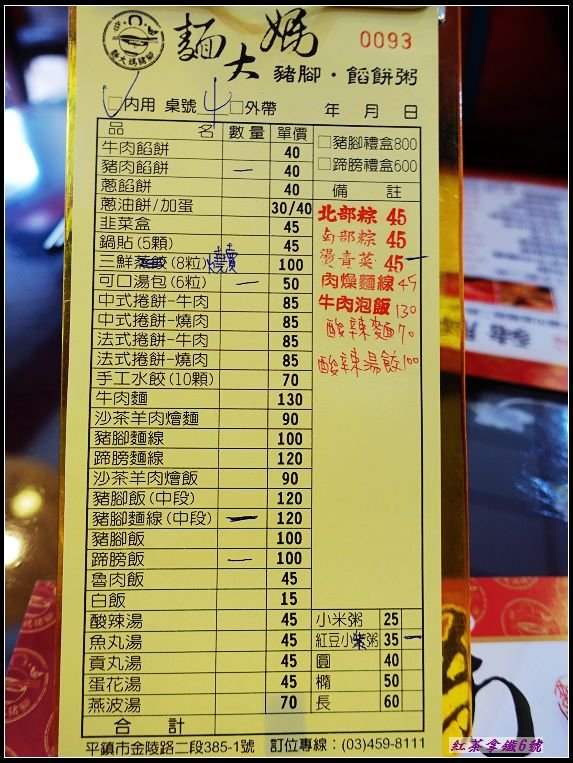 麵大媽豬腳
麵大媽 豬腳·餡餅粥
0093
□內用 桌號 4 □外帶 年 月 日
品 名 數量 單價
牛肉餡餅 40
豬肉餡餅 一 40
蔥餡餅 40
蔥油餅/加蛋 30/40
韭菜盒 45
鍋貼(5顆) 45
三鮮蒸餃(8粒) 燒賣 100
可口湯包(6粒) 一 50
中式捲餅-牛肉 85
中式捲餅-燒肉 85
法式捲餅-牛肉 85
法式捲餅-燒肉 85
手工水餃(10顆) 70
牛肉麵 130
沙茶羊肉燴麵 90
豬腳麵線 100
蹄膀麵線 120
沙茶羊肉燴飯 90
豬腳飯(中段) 120
豬腳麵線(中段) 一 120
豬腳飯 100
蹄膀飯 一 100
魯肉飯 45
白飯 15
酸辣湯 45
魚丸湯 45
貢丸湯 45
蛋花湯 45
燕波湯 70
合 計
□豬腳禮盒800
□蹄膀禮盒600
備 註
北部粽 45
南部粽 45
燙青菜 45 一
肉燥麵線 45
牛肉泡飯 130
酸辣麵 70
酸辣湯餃 100
小米粥 25
紅豆小紫粥 35 一
圓 40
橢 50
長 60
平鎮市金陵路二段385-1號 訂位專線：(03)459-8111
紅茶拿鐵6號